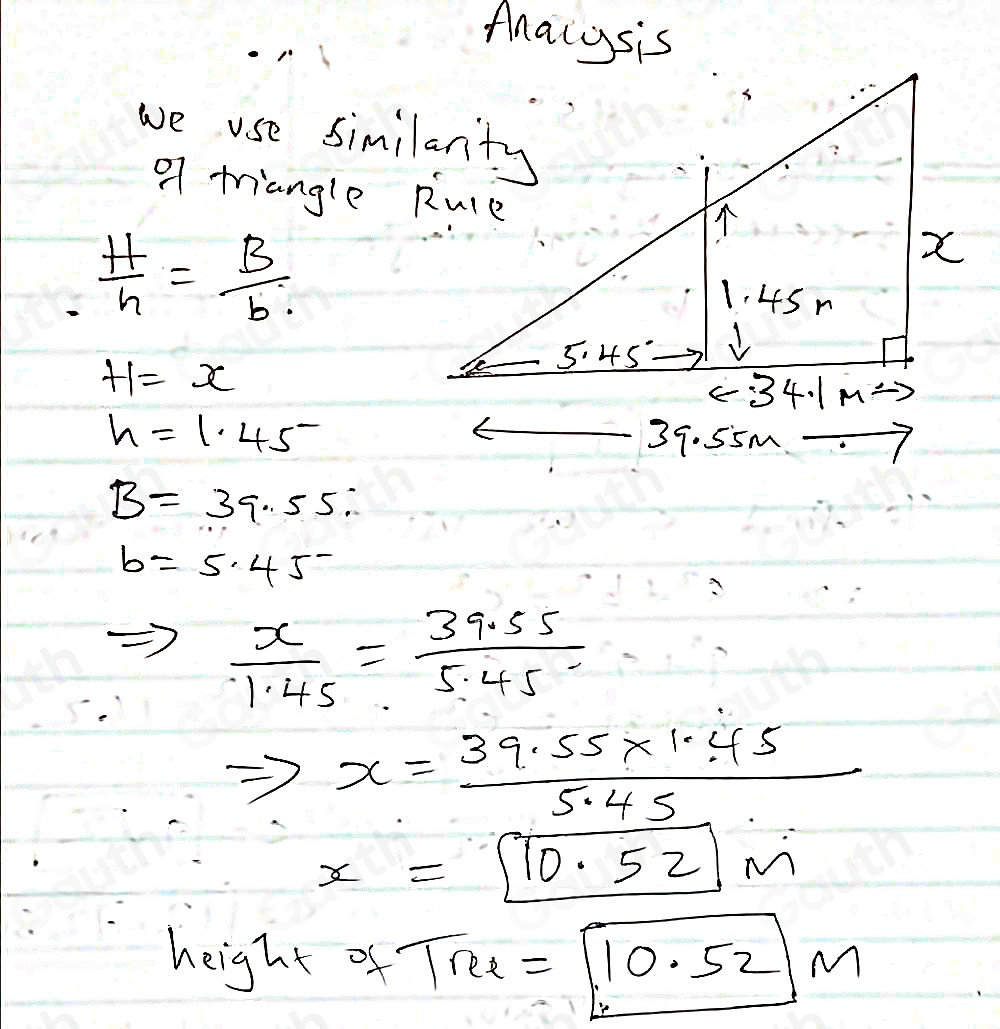 Analysis
we use similarity
of triangle Rule
H/h = B/b
H = x
h = 1.45
B = 39.55
b = 5.45
x
1.45m
5.45
34.1M
39.55M
=> x/1.45 = 39.55/5.45
=> x = 39.55 x 1.45/5.45
x = 10.52 M
height of Tree = 10.52 M
Gauth